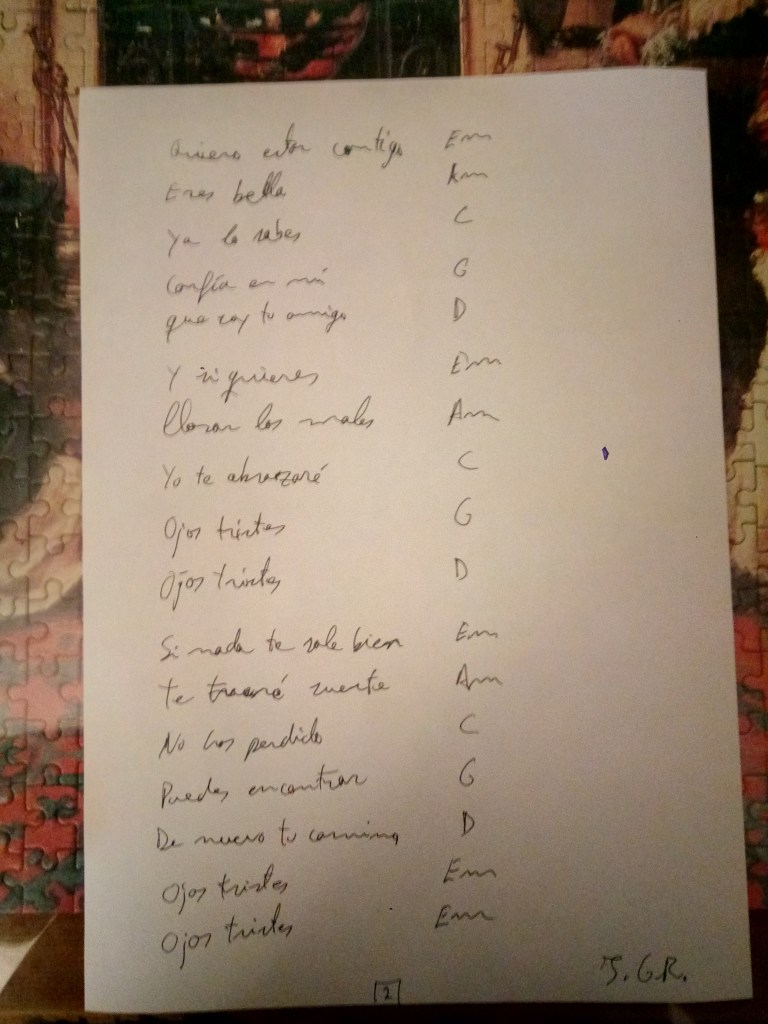 Quiero estar contigo Em
Eres bella Am
Ya lo sabes C
Confía en mí G
que soy tu amigo D
Y si quieres Em
llorar los males Am
Yo te abrazaré C
Ojos tristes G
Ojos tristes D
Si nada te sale bien Em
te traeré suerte Am
No has perdido C
Puedes encontrar G
De nuevo tu camino D
Ojos tristes Em
Ojos tristes Em
J.G.R.
2